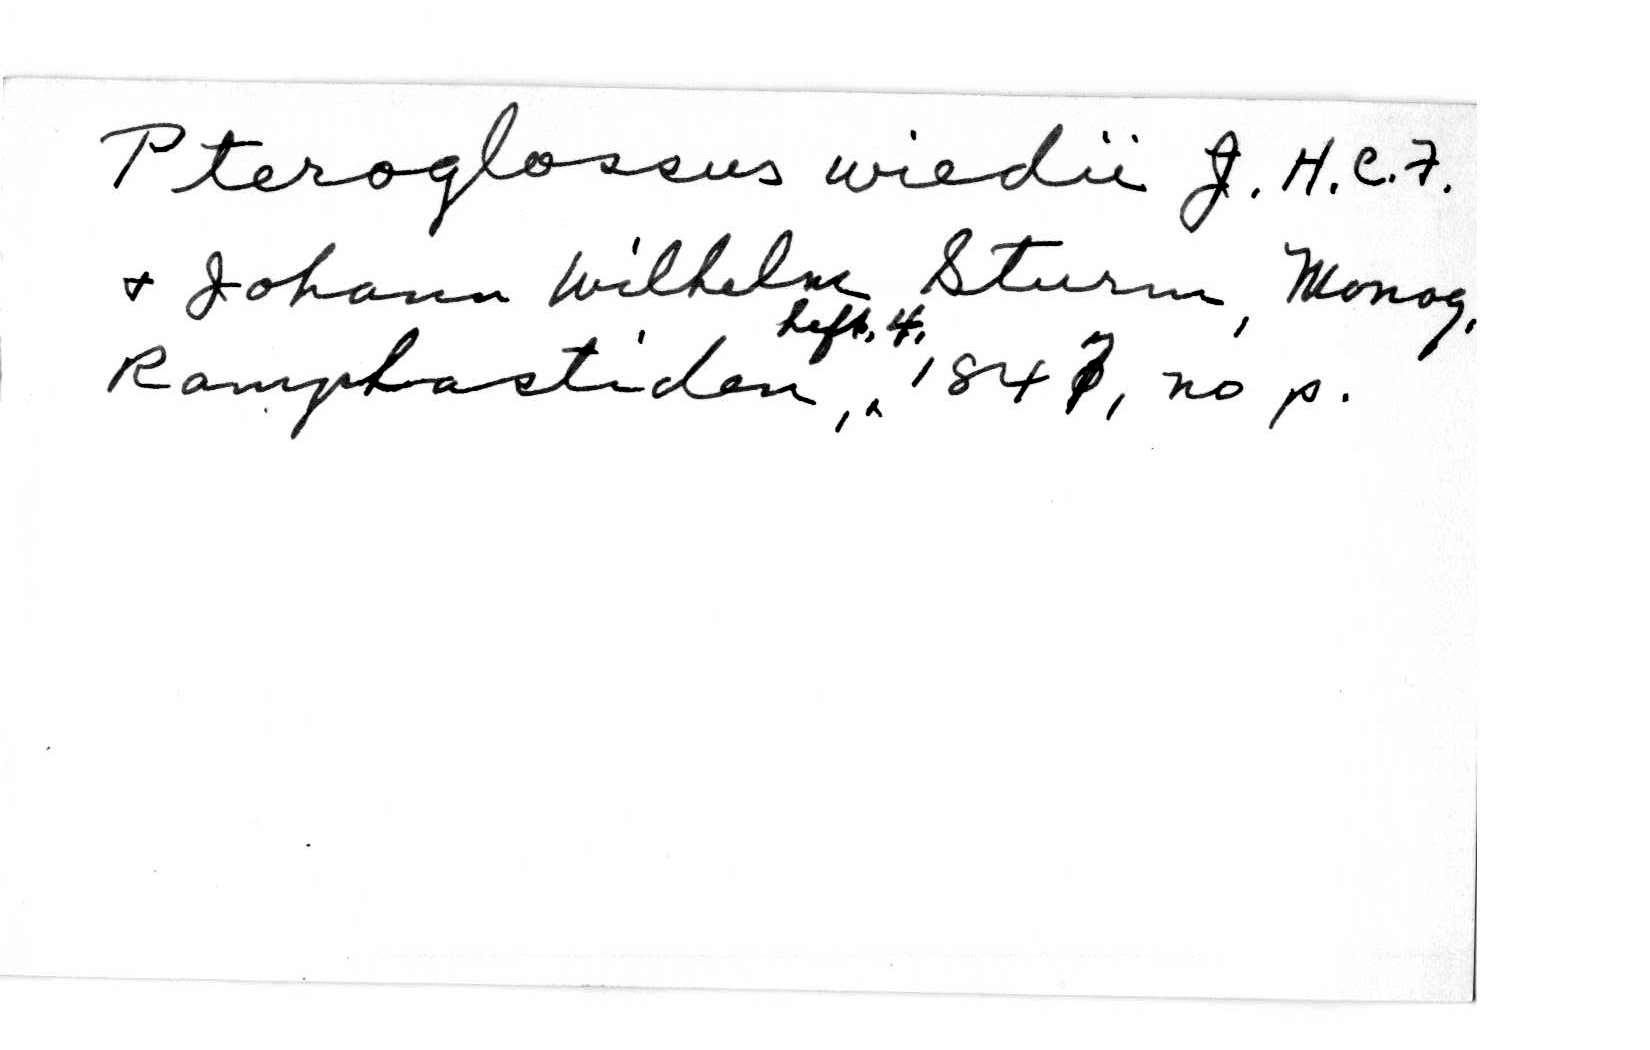 Pteroglossus wiedii J. H. C. F.
+ Johann Wilhelm Sturm, Monog.
Ramphastiden, heft. 4. 1847, no p.